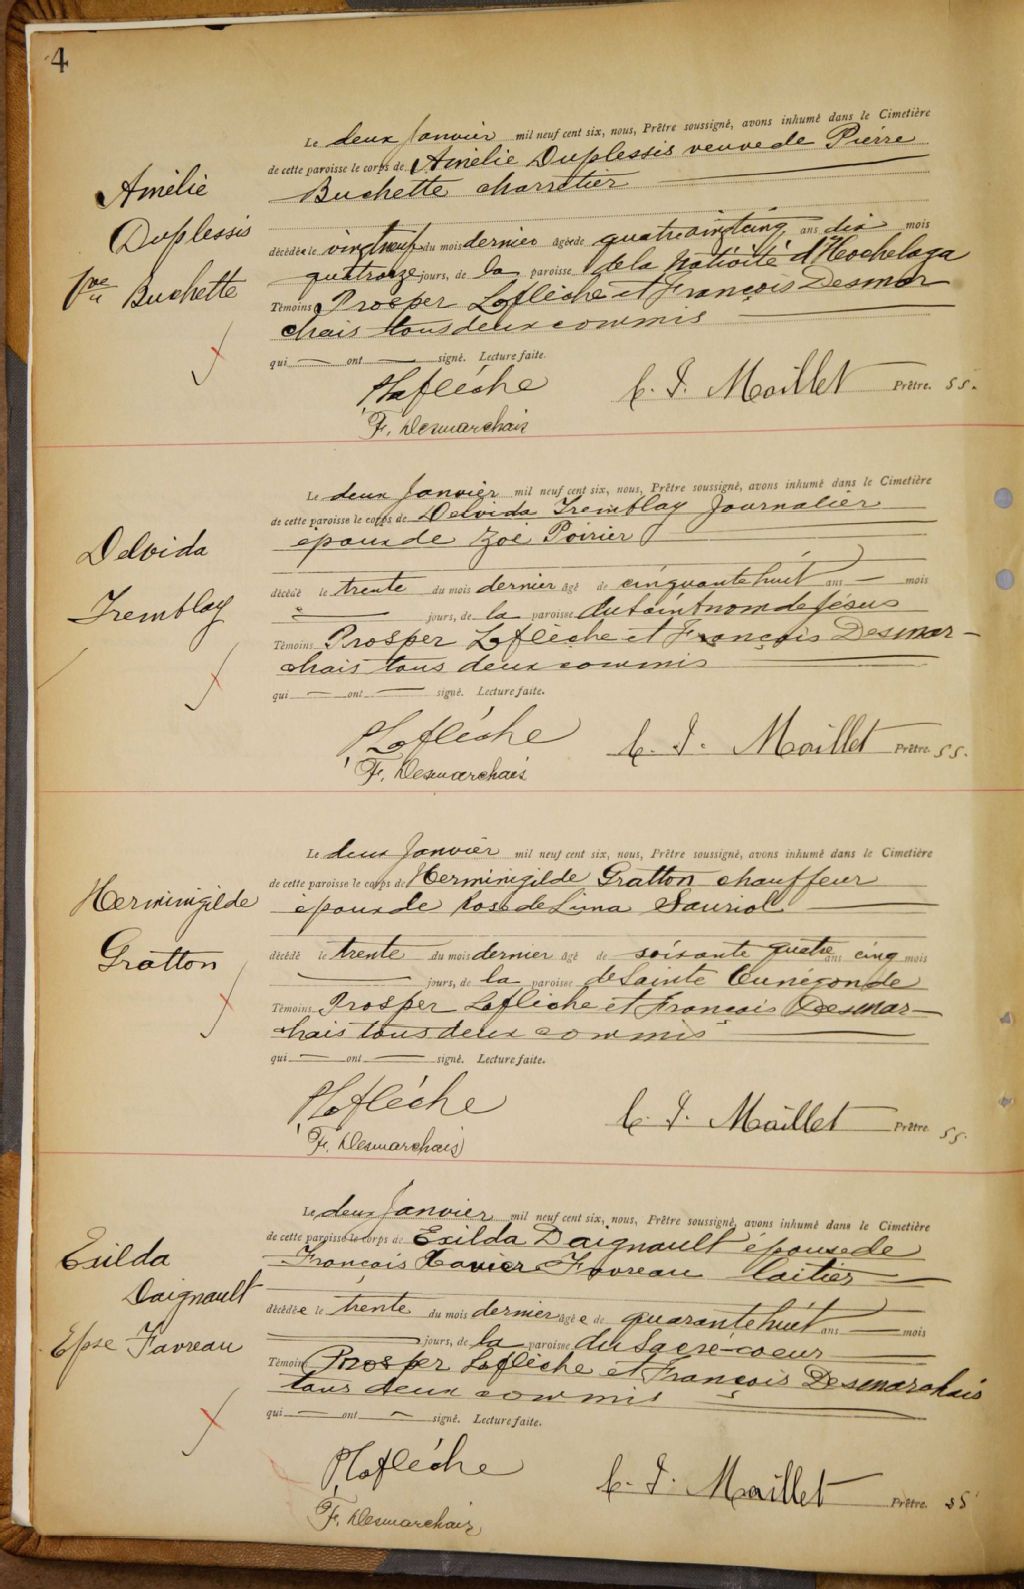 4
Le deux Janvier mil neuf cent six, nous, Prêtre soussigné, avons inhumé dans le Cimetière
de cette paroisse le corps de Amélie Duplessis veuve de Pierre
Buchette charretier
Amélie
Duplessis
Vve Buchette
décédée le vingt neuf du mois dernier agée de quatrevingt cinq ans dix mois
quatorze jours, de la paroisse de la Nativité d'Hochelaga
Témoins Prosper Laflèche et François Desmar
chais tous deux commis
qui — ont — signé. Lecture faite.
PLaflèche
C. I. Maillet Prêtre. SS.
F. Desmarchais
Le deux Janvier mil neuf cent six, nous, Prêtre soussigné, avons inhumé dans le Cimetière
de cette paroisse le corps de Delvida Tremblay Journalier
époux de Zoé Poirier
Delvida
Tremblay
décédé le trente du mois dernier âgé de cinquante huit ans — mois
— jours, de la paroisse du Saint nom de Jésus
Témoins Prosper Laflèche et François Desmar-
chais tous deux commis
qui — ont — signé. Lecture faite.
PLaflèche
C. I. Maillet Prêtre. SS.
F. Desmarchais
Le deux Janvier mil neuf cent six, nous, Prêtre soussigné, avons inhumé dans le Cimetière
de cette paroisse le corps de Herminigilde Gratton chauffeur
époux de Rose de Lima Sauriol
Herminigilde
Gratton
décédé le trente du mois dernier âgé de soixante quatre ans cinq mois
— jours, de la paroisse de Sainte Cunégonde
Témoins Prosper Laflèche et François Desmar-
chais tous deux commis
qui — ont — signé. Lecture faite.
PLaflèche
C. I. Maillet Prêtre SS.
F. Desmarchais
Le deux Janvier mil neuf cent six, nous, Prêtre soussigné, avons inhumé dans le Cimetière
de cette paroisse le corps de Exilda Daignault épouse de
François Xavier Favreau laitier
Exilda
Daignault
Epse Favreau
décédée le trente du mois dernier âgée de quarante huit ans — mois
— jours, de la paroisse du Sacré-coeur
Témoins Prosper Laflèche et François Desmarchais
tous deux commis
qui — ont — signé. Lecture faite.
PLaflèche
C. I. Maillet Prêtre. SS
F. Desmarchais